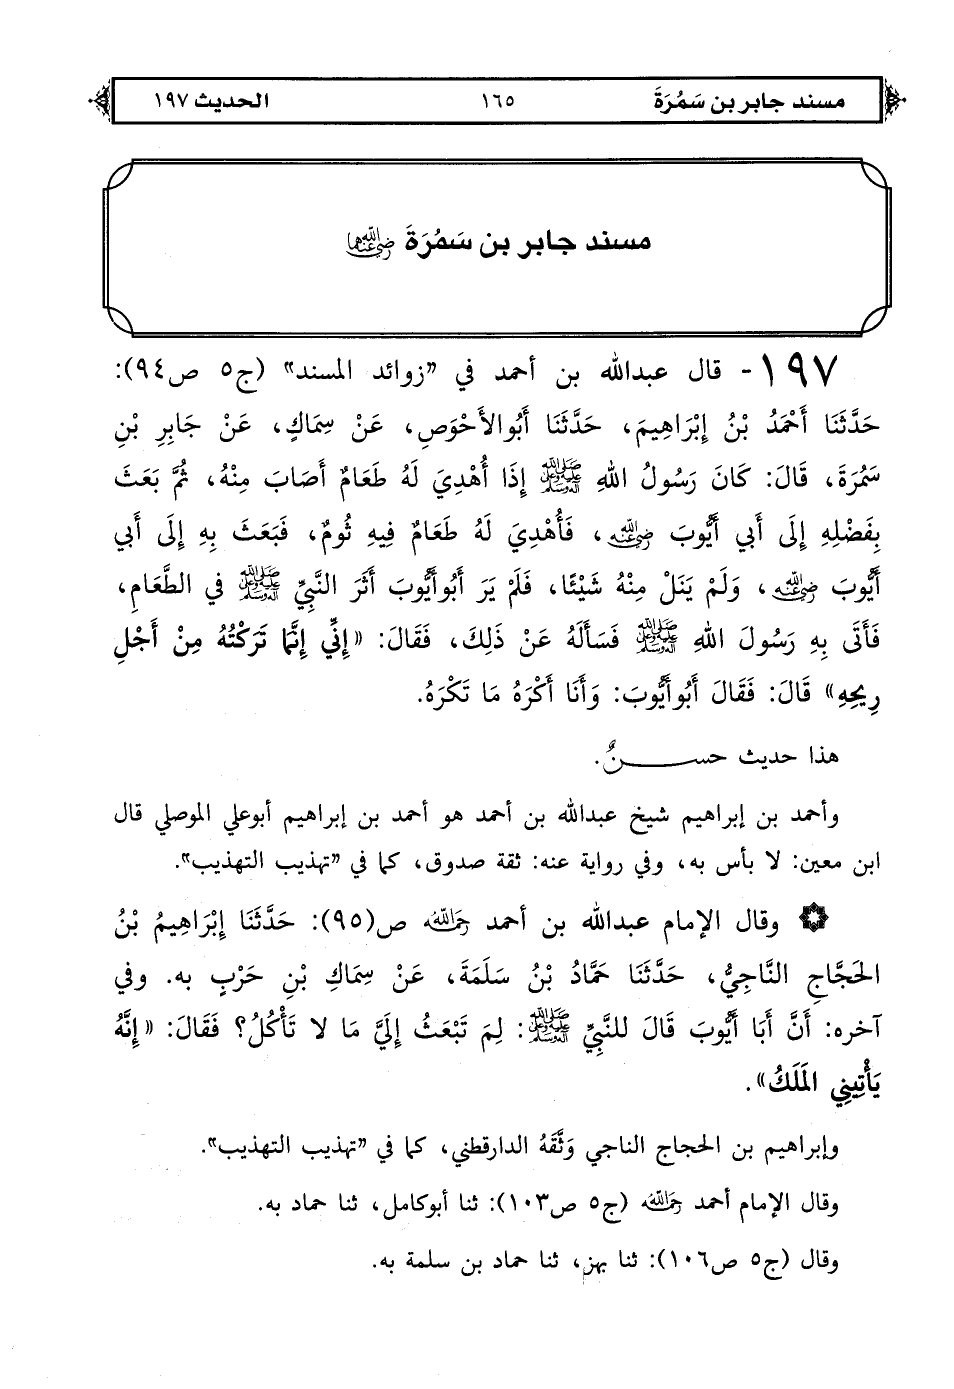 مسند جابر بن سَمُرَةَ ١٦٥ الحديث ١٩٧
مسند جابر بن سَمُرَةَ رضي الله عنهما
١٩٧- قال عبدالله بن أحمد في "زوائد المسند" (ج٥ ص٩٤):
حَدَّثَنَا أَحْمَدُ بْنُ إِبْرَاهِيمَ، حَدَّثَنَا أَبُوالأَحْوَصِ، عَنْ سِمَاكٍ، عَنْ جَابِرِ بْنِ
سَمُرَةَ، قَالَ: كَانَ رَسُولُ اللهِ ﷺ إِذَا أُهْدِيَ لَهُ طَعَامٌ أَصَابَ مِنْهُ، ثُمَّ بَعَثَ
بِفَضْلِهِ إِلَى أَبِي أَيُّوبَ رضي الله عنه، فَأُهْدِيَ لَهُ طَعَامٌ فِيهِ ثُومٌ، فَبَعَثَ بِهِ إِلَى أَبِي
أَيُّوبَ رضي الله عنه، وَلَمْ يَنَلْ مِنْهُ شَيْئًا، فَلَمْ يَرَ أَبُوأَيُّوبَ أَثَرَ النَّبِيِّ ﷺ فِي الطَّعَامِ،
فَأَتَى بِهِ رَسُولَ اللهِ ﷺ فَسَأَلَهُ عَنْ ذَلِكَ، فَقَالَ: «إِنِّي إِنَّمَا تَرَكْتُهُ مِنْ أَجْلِ
رِيحِهِ» قَالَ: فَقَالَ أَبُوأَيُّوبَ: وَأَنَا أَكْرَهُ مَا تَكْرَهُ.
هذا حديث حســـــنٌ.
وأحمد بن إبراهيم شيخ عبدالله بن أحمد هو أحمد بن إبراهيم أبوعلي الموصلي قال
ابن معين: لا بأس به، وفي رواية عنه: ثقة صدوق، كما في "تهذيب التهذيب".
وقال الإمام عبدالله بن أحمد رحمه الله ص(٩٥): حَدَّثَنَا إِبْرَاهِيمُ بْنُ
الحَجَّاجِ النَّاجِيُّ، حَدَّثَنَا حَمَّادُ بْنُ سَلَمَةَ، عَنْ سِمَاكِ بْنِ حَرْبٍ به. وفي
آخره: أَنَّ أَبَا أَيُّوبَ قَالَ للنَّبِيِّ ﷺ: لِمَ تَبْعَثُ إِلَيَّ مَا لا تَأْكُلُ؟ فَقَالَ: «إِنَّهُ
يَأْتِينِي المَلَكُ».
وإبراهيم بن الحجاج الناجي وَثَّقَهُ الدارقطني، كما في "تهذيب التهذيب".
وقال الإمام أحمد رحمه الله (ج٥ ص١٠٣): ثنا أبوكامل، ثنا حماد به.
وقال (ج٥ ص١٠٦): ثنا بهز، ثنا حماد بن سلمة به.